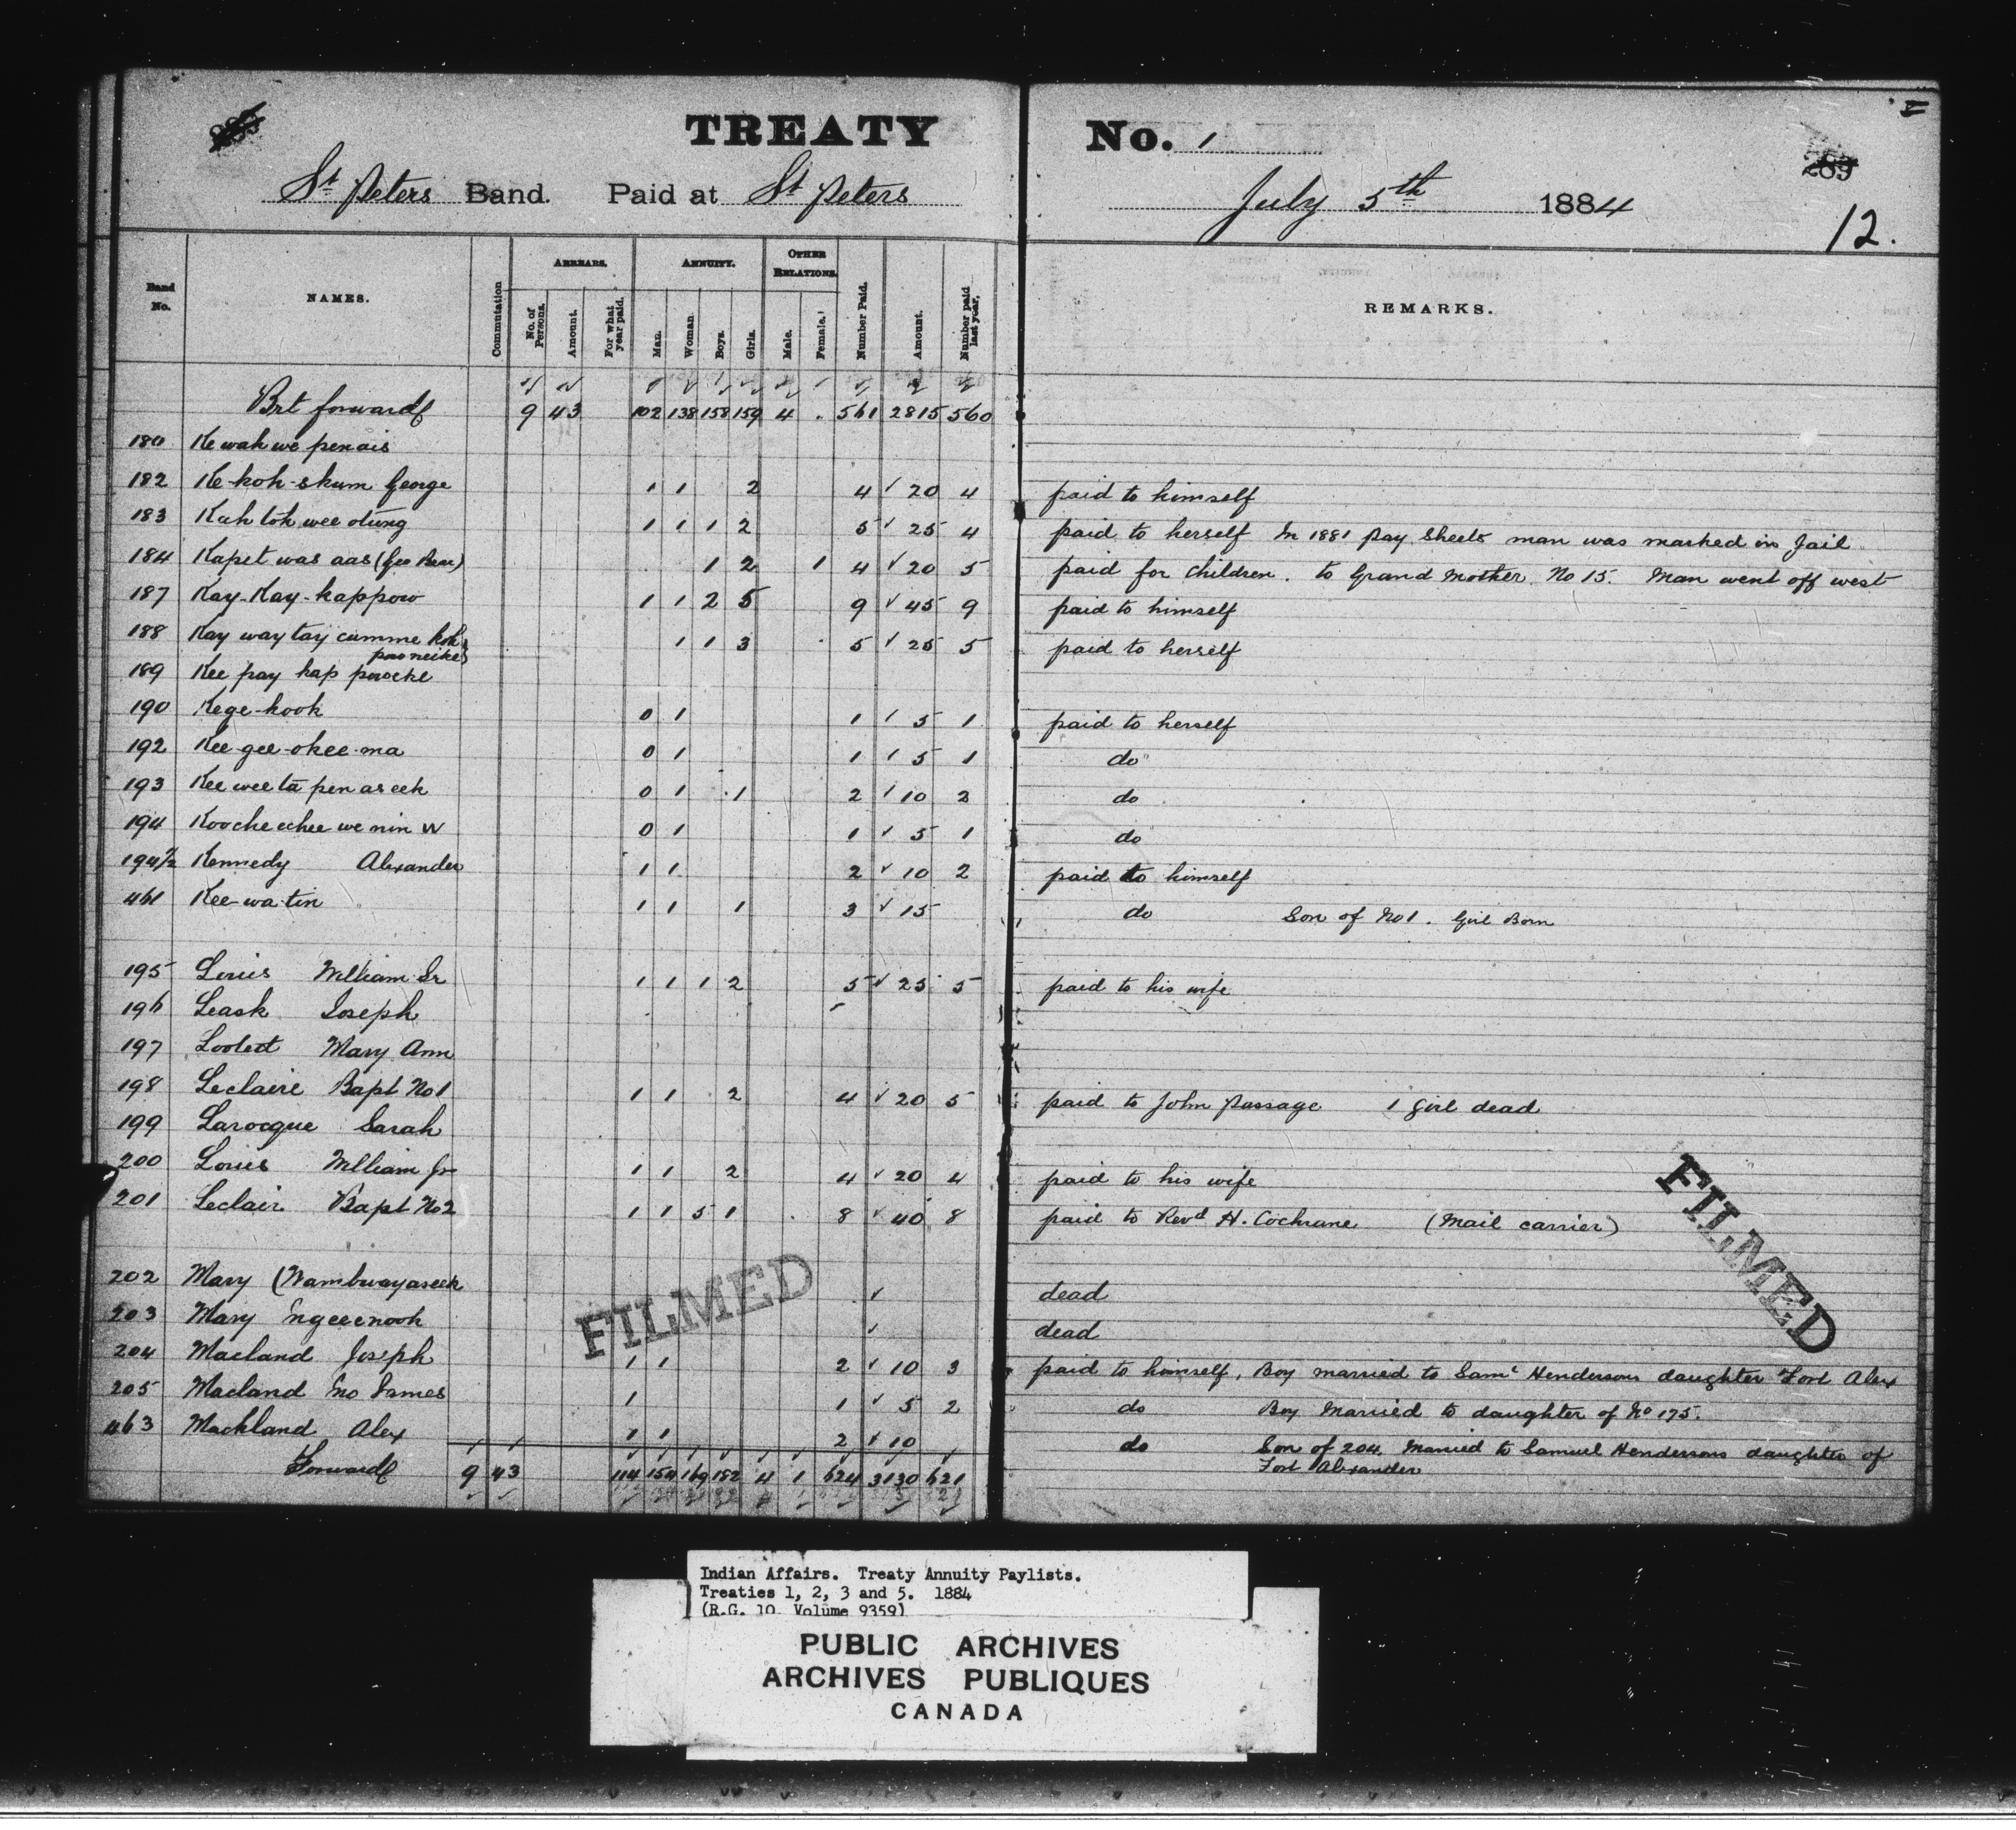 TREATY No. 1
289
St Peters Band. Paid at St Peters July 5th 1884
12.
Band No. NAMES. Commutation ARREARS. No. of Persons. Amount. For what year paid. ANNUITY. Man. Woman Boys. Girls. OTHER RELATIONS. Male. Female. Number Paid. Amount. Number paid last year. REMARKS.
Brt forward 9 43 102 138 158 159 4 . 561 2815 560
180 Ke wah we penais
182 Ke-koh-skum George 1 1 2 4 20 4 paid to himself
183 Kah toh wee otung 1 1 1 2 5 25 4 paid to herself In 1881 pay sheets man was marked in Jail
184 Kapet was aas (Geo Bear) 1 2 1 4 20 5 paid for children. to Grand Mother No 15. Man went off west
187 Kay-Kay-kappow 1 1 2 5 9 45 9 paid to himself
188 Kay way tay cumme koh 1 1 3 5 25 5 paid to herself
189 Kee pay kap
190 Kege-kook 0 1 1 5 1 paid to herself
192 Kee-gee-okee-ma 0 1 1 5 1 do
193 Kee wee ta pen aseek 0 1 1 2 10 2 do
194 Kooche echee we nin W 0 1 1 5 1 do
194½ Kennedy Alexander 1 1 2 10 2 paid to himself
461 Kee-wa-tin 1 1 1 3 15 do Son of No 1. Girl Born
195 Louis William Sr 1 1 1 2 5 25 5 paid to his wife
196 Leask Joseph
197 Mary Ann
198 Leclaire Bapt No 1 1 1 2 4 20 5 paid to John Passage 1 girl dead
199 Larocque Sarah
200 Louis William Jr 1 1 2 4 20 4 paid to his wife
201 Leclair Bapt No 2 1 1 5 1 8 40 8 paid to Revd H. Cochrane (Mail carrier)
202 Mary (Wambwayaseek dead
203 Mary dead
204 Macland Joseph 1 1 2 10 3 paid to himself, Boy married to Saml Hendersons daughter Fort Alex
205 Macland Jno James 1 1 5 2 do Boy Married to daughter of No 175.
463 Mackland Alex 1 1 2 10 do Son of 204. Married to Samuel Hendersons daughter of
Fort Alexander
Forward 9 43 114 154 169 182 4 1 624 3130 621
FILMED
FILMED
Indian Affairs. Treaty Annuity Paylists.
Treaties 1, 2, 3 and 5. 1884
(R.G. 10 Volume 9359)
PUBLIC ARCHIVES
ARCHIVES PUBLIQUES
CANADA